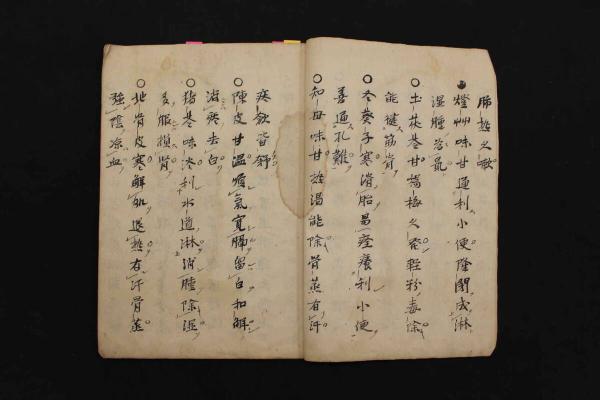 肺熱之咳
○燈艸味甘通利小便隆閉成淋
湿腫為最
○土茯苓甘楊梅之瘡輕粉毒除
能健筋骨
○冬葵子寒滑胎易產癃利小便
善通乳難
○知母味甘熱渴能除骨蒸有汗
痰欬皆舒
○陳皮甘溫順氣寬膈留白和解
治痰去白
○猪苓味淡利水道淋消腫除湿
多服損腎
○地骨皮寒解肌退熱有汗骨蒸
強陰凉血